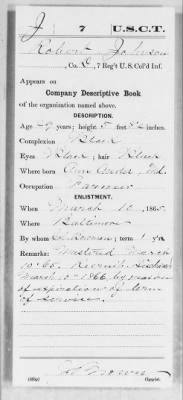 J 7 U.S.C.T.
Robert Johnson
, Co. D, 7 Reg't U.S. Col'd Inf.
Appears on
Company Descriptive Book
of the organization named above.
DESCRIPTION.
Age 29 years; height 5 feet 8½ inches.
Complexion Black
Eyes Black; hair Black
Where born Ann Arundel, Md.
Occupation Farmer
ENLISTMENT.
When March 10, 1865.
Where Baltimore
By whom; term 1 y'rs.
Remarks: Mustered March
10 65.
March 10 - 1866, by reason
of expiration of term
of service.
Copyist.